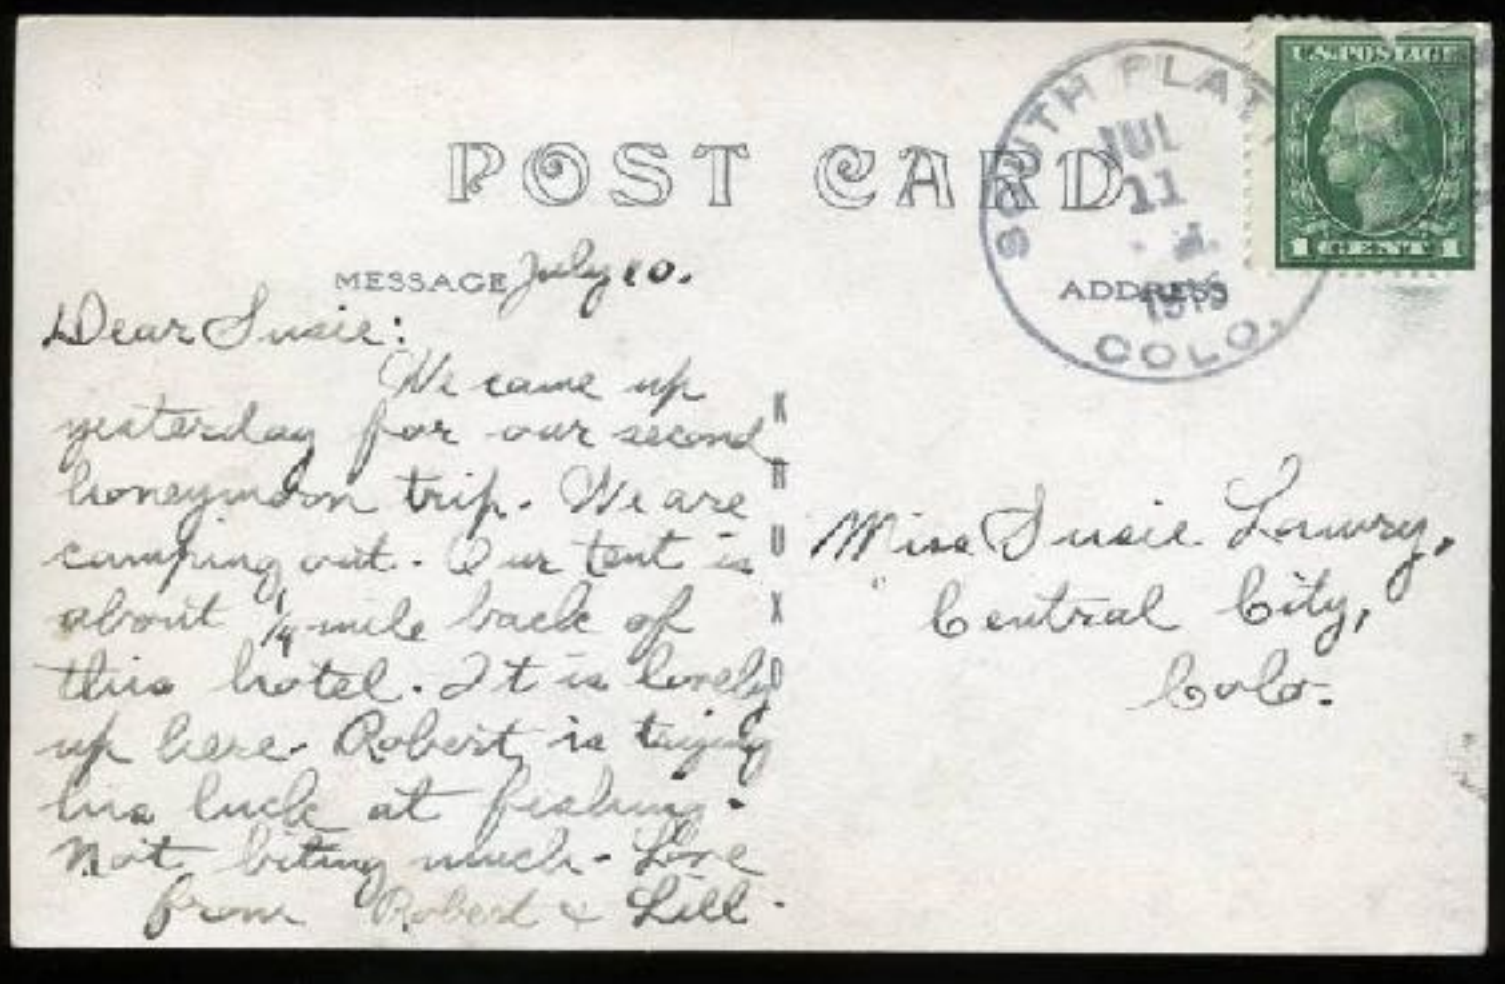 POST CARD
SOUTH PLATT
JUL
11
COLO.
U.S. POSTAGE
1 CENT 1
MESSAGE
ADDRESS
July 10.
Dear Susie:
We came up
yesterday for our second
honeymoon trip. We are
camping out. Our tent is
about 1/4 mile back of
this hotel. It is lovely
up here. Robert is trying
his luck at fishing.
Not biting much. Love
from Robert & Lill.
KRUXO
Miss Susie Lowry,
Central City,
Colo.